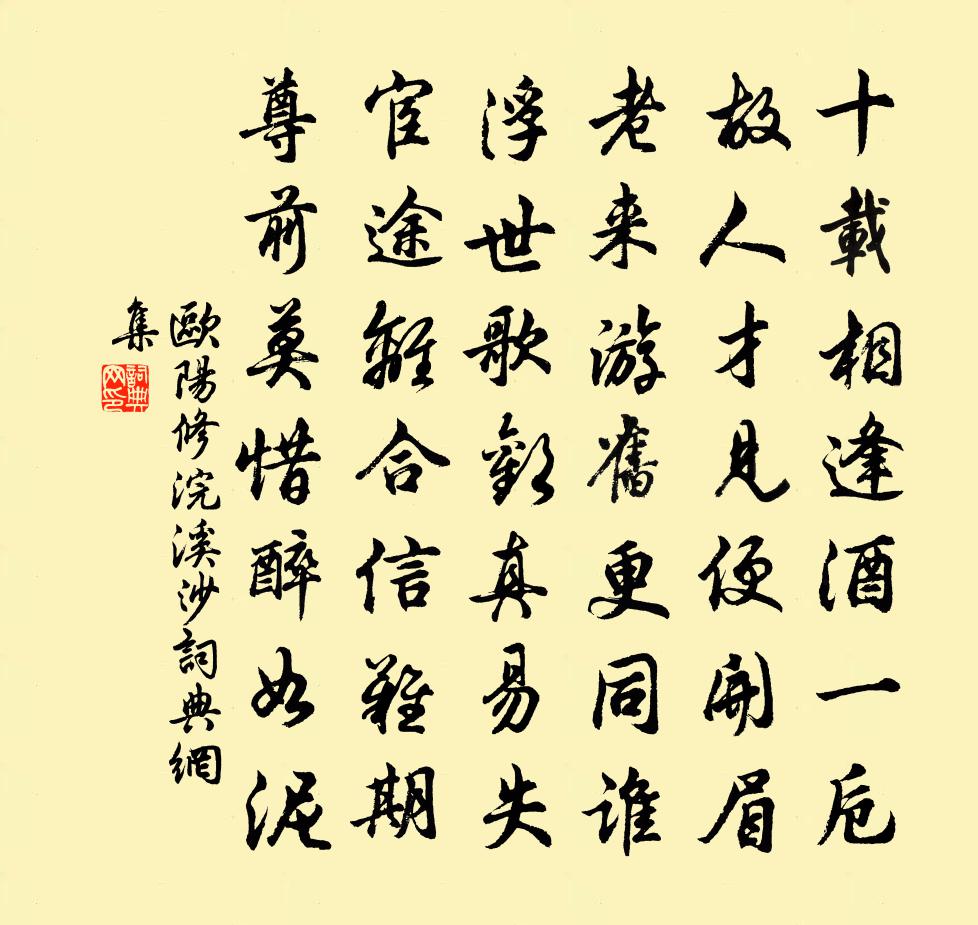 十載相逢酒一卮
故人才見便開眉
老来游舊更同誰
浮世歌歡真易失
宦途離合信難期
尊前莫惜醉如泥
歐陽修浣溪沙詞典網
集
詞典網印